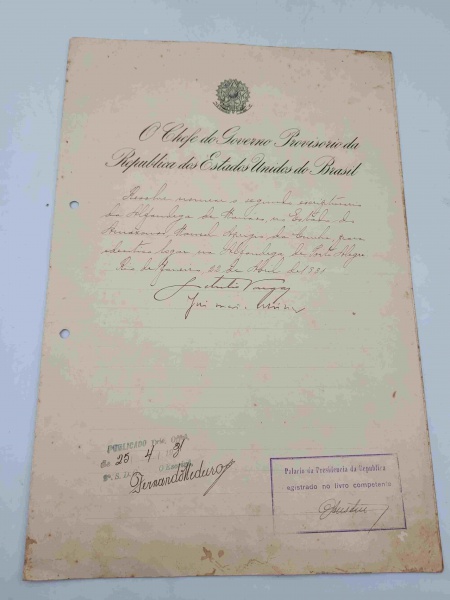 O Chefe do Governo Provisorio da
Republica dos Estados Unidos do Brasil
Resolve nomear o segundo escripturario
da Alfandega de Manaos, no Estado do
Amazonas, Manoel da Cunha, para
identico logar na Alfandega de Porto Alegre
Rio de Janeiro, 22 de Abril de 1931
Getulio Vargas
PUBLICADO
25 4 31
Fernando
Palacio da Presidencia da Republica
egistrado no livro competente